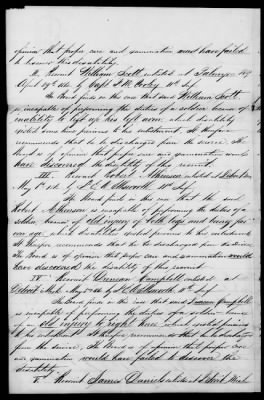 opinion that proper care and examination would have failed
to discover this disability.
II. Recruit William Scott enlisted at
April 19th 1862 by Capt. 18" Inf.
The Board finds in the case that said William Scott
is incapable of performing the duties of a soldier because of
inability to lift up his left arm which disability
existed some time previous to his enlistment. It therefore
recommends that he be discharged from the service. The
Board is of opinion that proper care and examination would
have discovered the disability of this recruit.
III. Recruit Robert Atkinson enlisted at
May 1st 1862 by Ellsworth 18" Inf.
The Board finds in this case that the said
Robert Atkinson is incapable of performing the duties of a
soldier because of old injury of both legs and being far
over age which disabilities existed previous to his enlistment
It therefore recommends that he be discharged from the service.
The Board is of opinion that proper care and examination would
have discovered the disability of this recruit
IV. Recruit Duncan Campbell enlisted at
Detroit Mich May 1862 by Ellsworth 18" Inf.
The Board finds in this case that said Duncan Campbell
is incapable of performing the duties of a soldier because
of an old injury to right knee which existed previous
to his enlistment It therefore recommends that he be discharged
from the service. The Board is of opinion that proper care
and examination would have failed to discover the
disability.
V. Recruit James Daniels enlisted at Detroit Mich